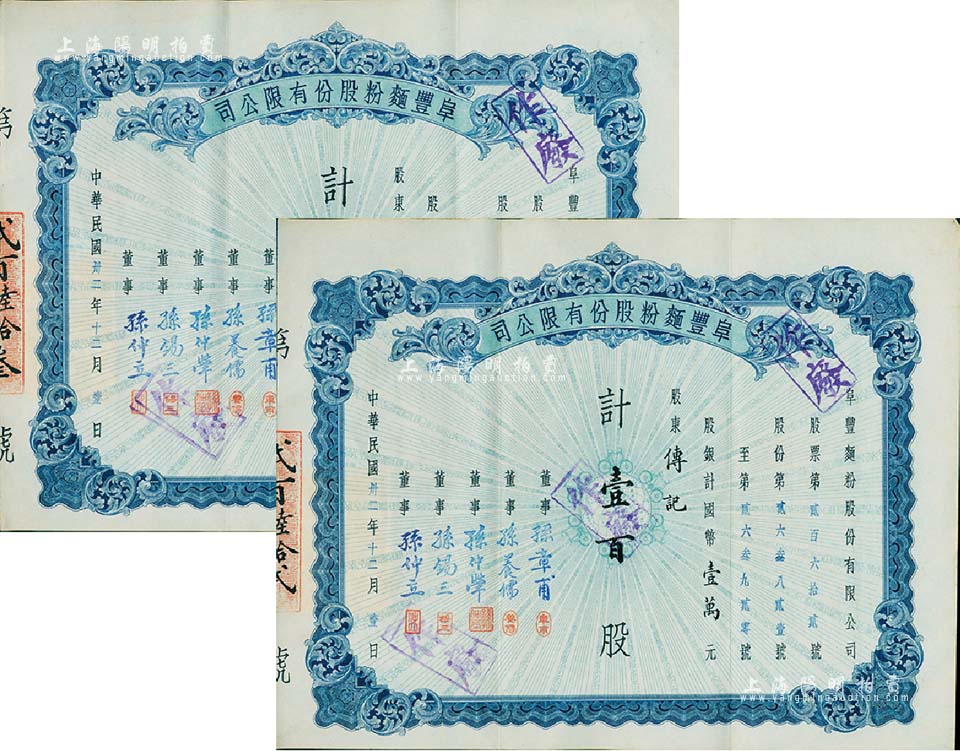 上海陽明拍賣
www.yangmingauction.com
司公限有份股粉麵豐阜
作廢
阜豐
股
股
股
股東
計
董事 孫章甫
董事 孫養儒
董事 孫仲犖
董事 孫錫三
董事 孫仲立
中華民國卅二年十二月壹日
第
貳百陸拾叁
號
司公限有份股粉麵豐阜
作廢
阜豐麵粉股份有限公司
股票第貳百六拾貳號
股份第貳六叁八貳壹號
至第貳六叁九貳零號
股銀計國幣壹萬元
股東傳記
計壹百股
作廢
董事 孫章甫
董事 孫養儒
董事 孫仲犖
董事 孫錫三
董事 孫仲立
作廢
中華民國卅二年十二月壹日
第
貳百陸拾貳
號
上海陽明拍賣
www.yangmingauction.com
上海陽明拍賣
www.yangmingauction.com